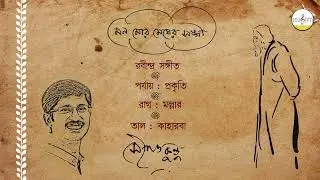 মন মোর মেঘের সঙ্গী
রবীন্দ্র সঙ্গীত
পর্যায় : প্রকৃতি
রাগ : মল্লার
তাল : কাহারবা